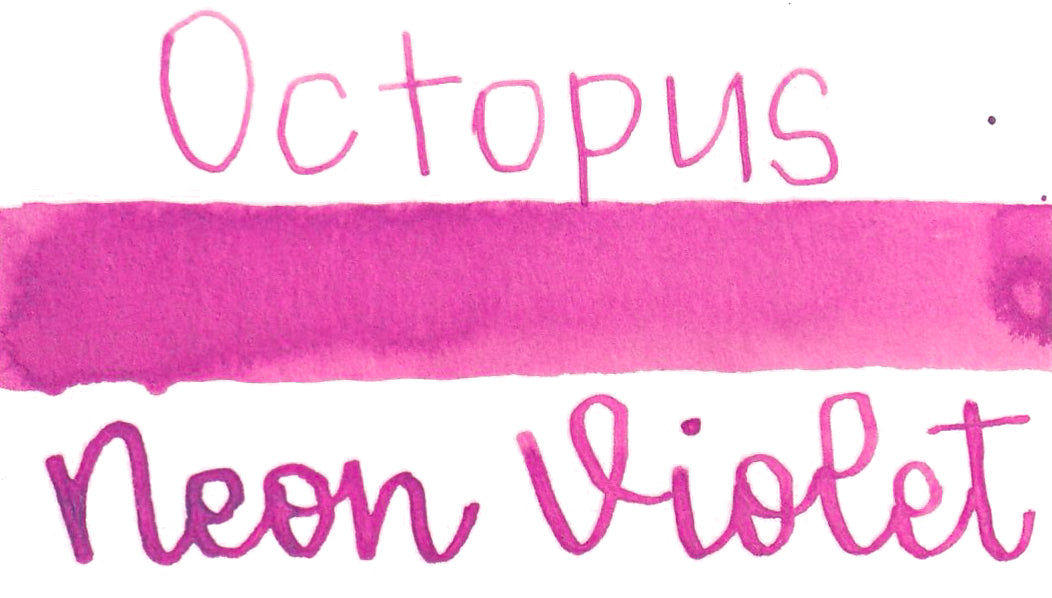 Octopus
Neon Violet